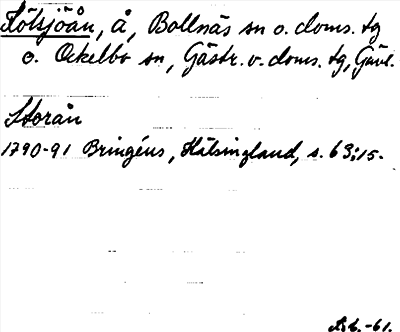 Flötsjöån, å, Bollnäs sn o. doms. tg
o. Ockelbo sn, Gästr. v. doms. tg, Gävl.
Storån
1790-91 Bringéus, Hälsingland, s. 63:15.
-61.